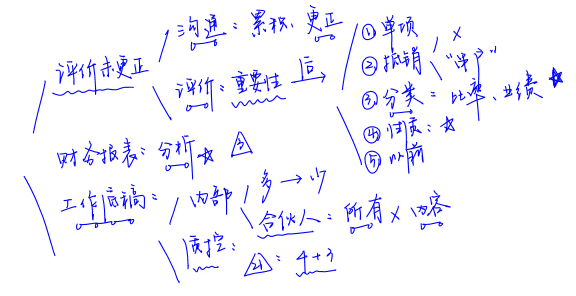 沟通：累积、更正
评价未更正
评价：重要性 后
① 单项
② 抵销 × "串户"
③ 分类：比率、业绩 ☆
④ 性质：☆
⑤ 以前
财务报表：分析 ☆ △3
工作底稿：内部 多→少
合伙人：所有 × 内容
质控：
△21：4+3